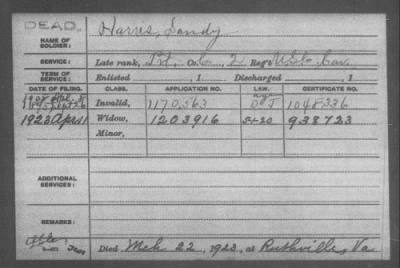 DEAD.
NAME OF SOLDIER: Harris, Sandy
SERVICE: Late rank, Pvt, Co. C, 2 Reg't U.S.C. Cav.
TERM OF SERVICE: Enlisted , 1 Discharged , 1
DATE OF FILING. CLASS. APPLICATION NO. LAW. CERTIFICATE NO.
Invalid, 1170,563 1048336
1923 Apr 11 Widow, 1203916 5-1-20 938723
Minor,
ADDITIONAL SERVICES:
REMARKS:
Died Mch 22, 1923, at Ruthville, Va